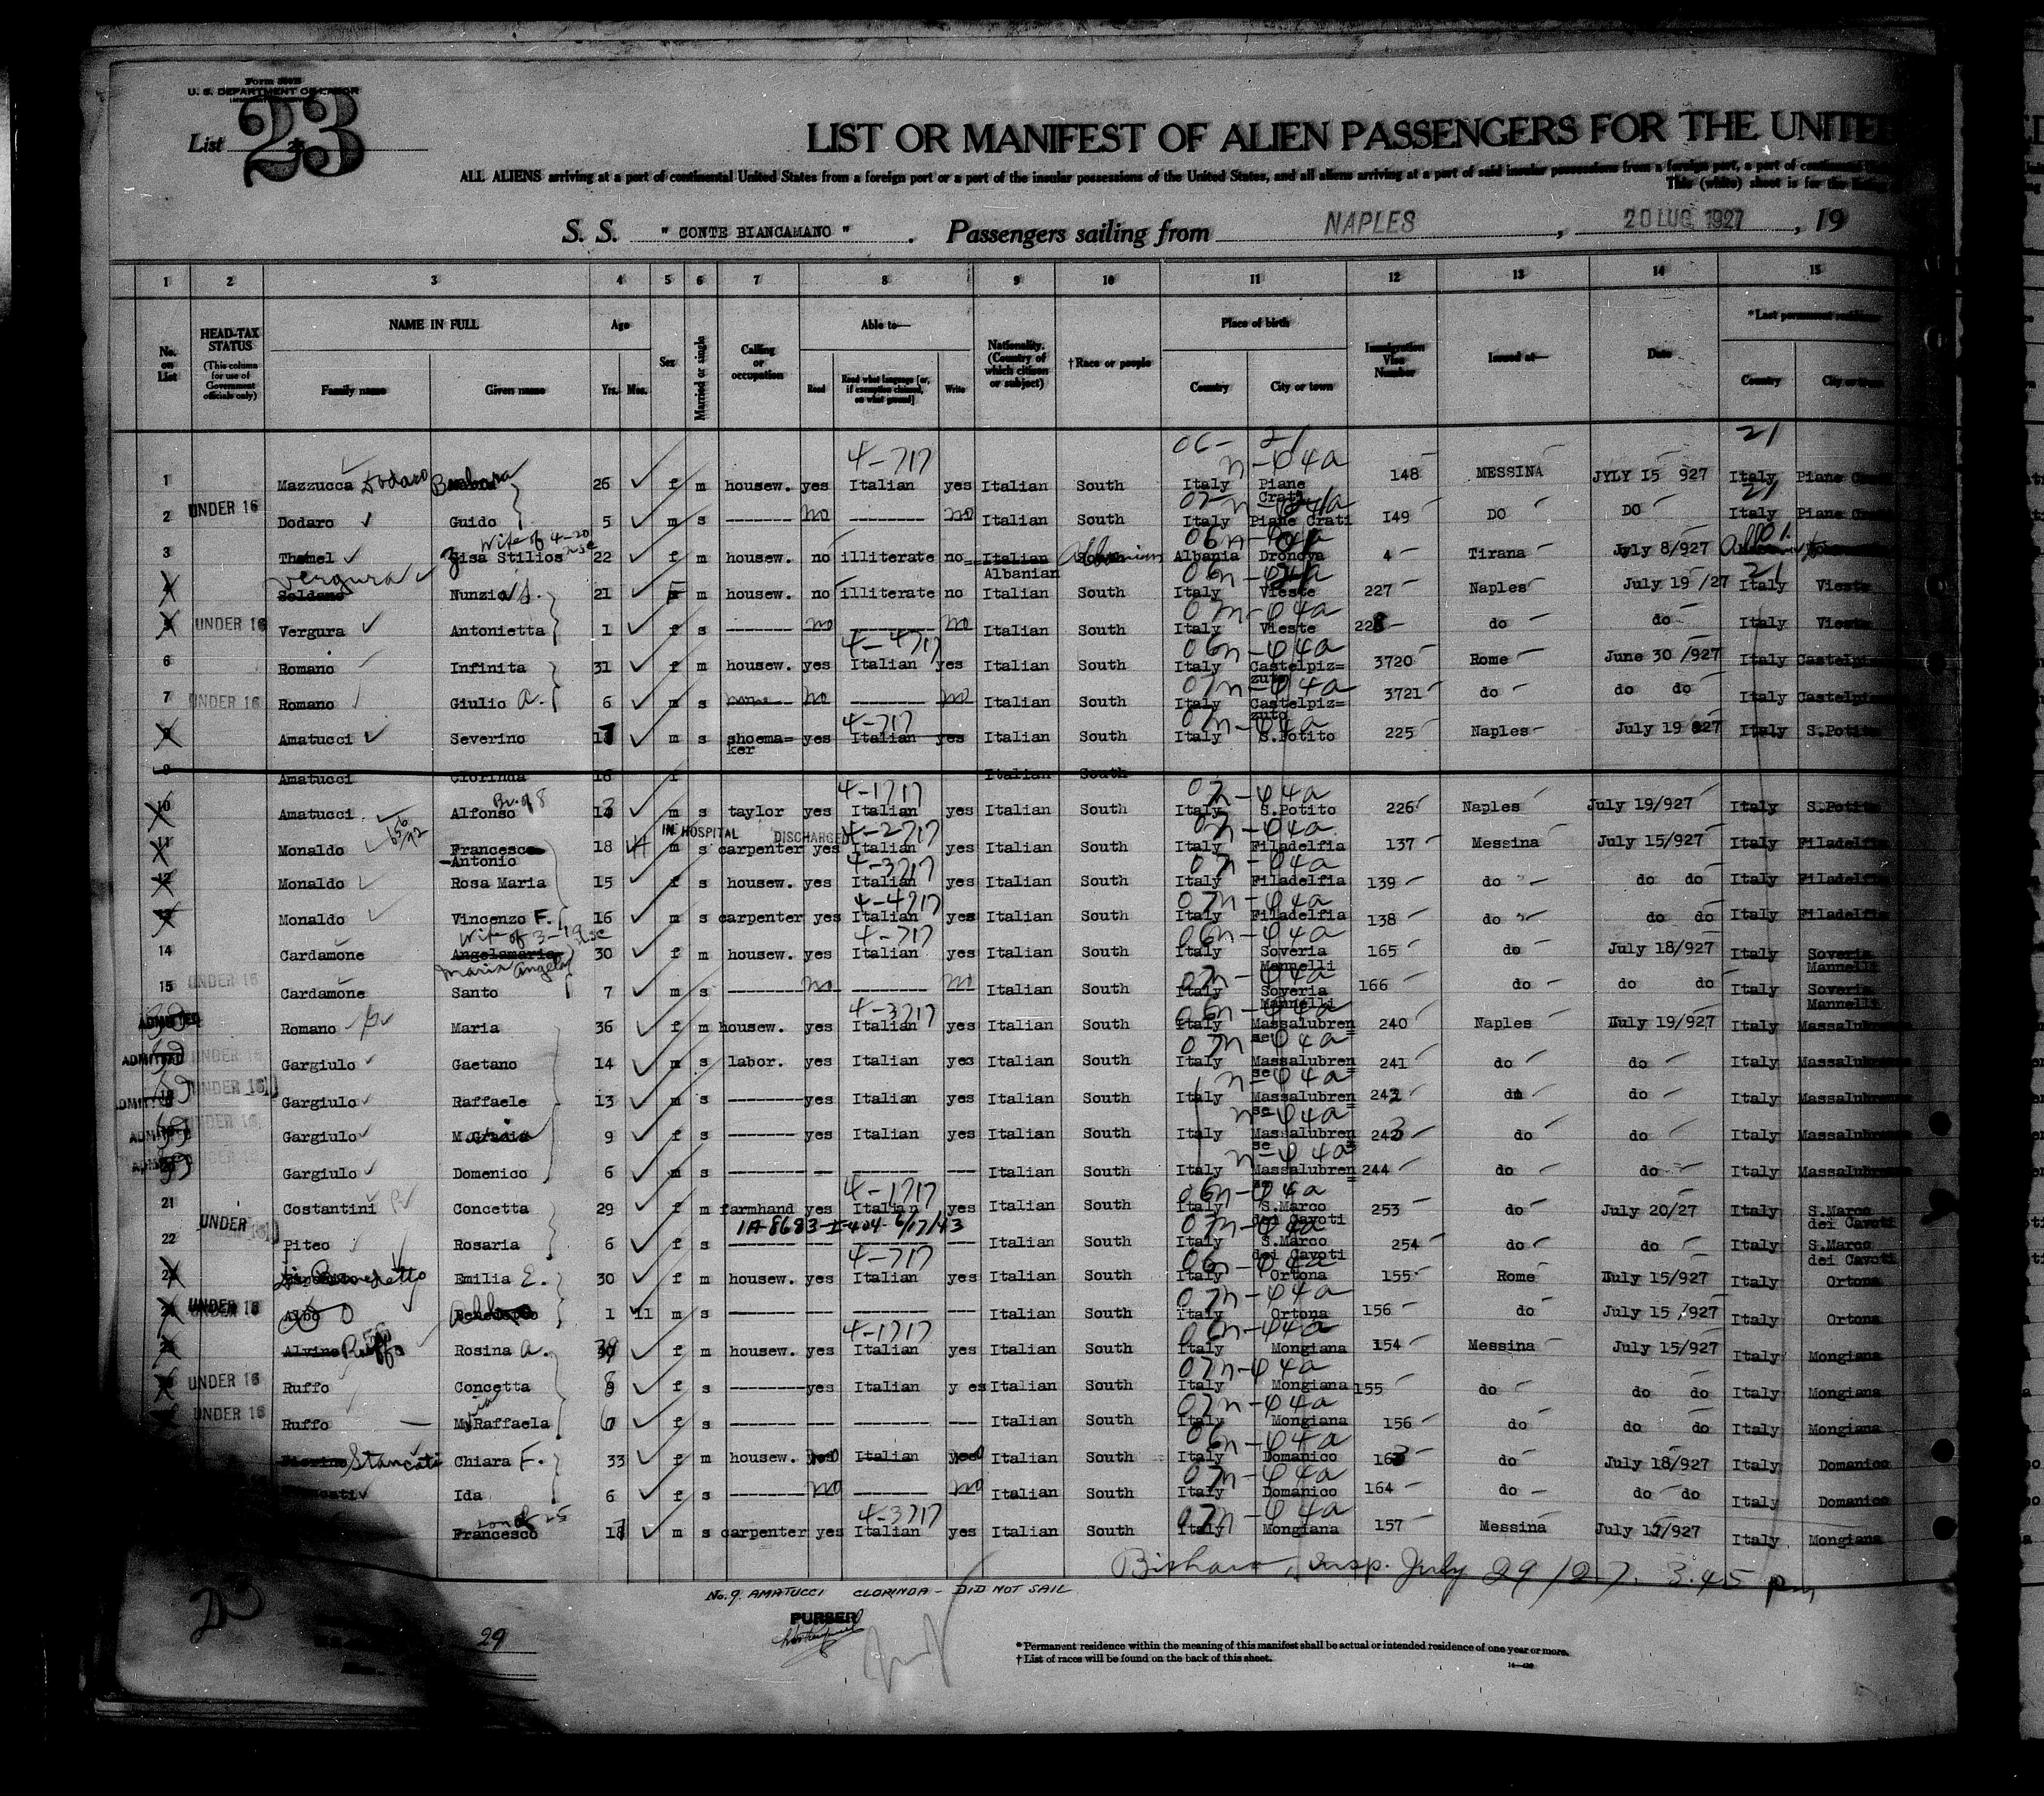 Form
U. S. DEPARTMENT OF LABOR
List 23
LIST OR MANIFEST OF ALIEN PASSENGERS FOR THE UNITE
ALL ALIENS arriving at a port of continental United States from a foreign port or a port of the insular possessions of the United States, and all aliens arriving at a port of said insular possessions from a foreign port, a port of continental
This (white) sheet is for the listing
S. S. " CONTE BIANCAMANO " . Passengers sailing from NAPLES , 20 LUG. 1927 , 19
1 2 3 4 5 6 7 8 9 10 11 12 13 14 15
No. on List
HEAD-TAX STATUS
(This column for use of Government officials only)
NAME IN FULL
Family name Given name
Age
Yrs. Mos.
Sex
Married or single
Calling or occupation
Able to—
Read Read what language [or, if exemption claimed, on what ground] Write
Nationality. (Country of which citizen or subject)
†Race or people
Place of birth
Country City or town
Immigration Visa Number
Issued at—
Date
*Last permanent residence
Country City or town
21
4-717
1 Mazzucca Dodaro Barbara 26 f m housew. yes Italian yes Italian South Italy Piane Crati 148 MESSINA JYLY I5 927 Italy Piane
2 UNDER 16 Dodaro Guido 5 m s no no Italian South Italy Piane Crati I49 DO DO Italy Piane Crati
Wife of 4-20
3 Themel Zisa Stilios 22 f m housew. no illiterate no Italian Albanian Albania Dronova 4 Tirana Jyly 8/927
Albanian
Vergura
4 Soldano Nunzia 21 f m housew. no illiterate no Italian South Italy Vieste 227 Naples July 19 /27 Italy Vieste
5 UNDER 16 Vergura Antonietta 1 f s no no Italian South Italy Vieste 228 do do Italy Vieste
4-4717
6 Romano Infinita 31 f m housew. yes Italian yes Italian South Italy Castelpiz=zuto 3720 Rome June 30 /927 Italy
7 UNDER 16 Romano Giulio a. 6 m s no no Italian South Italy Castelpiz=zuto 3721 do do do Italy
4-717
8 Amatucci Severino m s shoema=ker yes Italian yes Italian South Italy S.Potito 225 Naples July 19 927 Italy S.Potito
9 Amatucci Clorinda 18 f Italian South
4-1717
10 Amatucci Alfonso Br. of 8 m s taylor yes Italian yes Italian South Italy S.Potito 226 Naples July 19/927 Italy S.Potito
IN HOSPITAL DISCHARGED 4-2717
11 Monaldo Francesco-Antonio 18 m s carpenter yes Italian yes Italian South Italy Filadelfia 137 Messina July 15/927 Italy Filadelfia
4-3717
12 Monaldo Rosa Maria 15 f s housew. yes Italian yes Italian South Italy Filadelfia 139 do do do Italy Filadelfia
4-4717
13 Monaldo Vincenzo F. 16 m s carpenter yes Italian yes Italian South Italy Filadelfia 138 do do do Italy Filadelfia
Wife of 3-19 4-717
14 Cardamone Angelamaria 30 f m housew. yes Italian yes Italian South Italy Soveria Mannelli 165 do July 18/927 Italy Soveria Mannelli
Maria Angela
15 UNDER 16 Cardamone Santo 7 m s no no Italian South Italy Soveria Mannelli 166 do do do Italy Soveria Mannelli
4-3717
ADMITTED Romano Maria 36 f m housew. yes Italian yes Italian South Italy Massalubren=se 240 Naples July 19/927 Italy
ADMITTED UNDER 16 Gargiulo Gaetano 14 m s labor. yes Italian yes Italian South Italy Massalubren=se 241 do do Italy
ADMITTED UNDER 16 Gargiulo Raffaele 13 m s yes Italian yes Italian South Italy Massalubren=se 242 do do Italy
ADMITTED UNDER 16 Gargiulo 9 f s yes Italian yes Italian South Italy Massalubren=se 243 do do Italy
ADMITTED UNDER 16 Gargiulo Domenico 6 m s Italian South Italy Massalubren=se 244 do do Italy
4-1717
21 Costantini Concetta 29 f m farmhand yes Italian yes Italian South Italy S.Marco dei Cavoti 253 do July 20/27 Italy S.Marco dei Cavoti
1A-8683-I-404-6/17/43
22 UNDER 16 Piteo Rosaria 6 f s Italian South Italy S.Marco dei Cavoti 254 do do Italy S.Marco dei Cavoti
4-717
23 Emilia E. 30 f m housew. yes Italian yes Italian South Italy Ortona 155 Rome July 15/927 Italy Ortona
24 UNDER 16 Albo 1 11 m s Italian South Italy Ortona 156 do July 15 /927 Italy Ortona
4-1717
25 Alvino Ruffo Rosina a. f m housew. yes Italian yes Italian South Italy Mongiana 154 Messina July 15/927 Italy Mongiana
UNDER 16 Ruffo Concetta f s yes Italian y es Italian South Italy Mongiana 155 do do do Italy Mongiana
UNDER 16 Ruffo M. Raffaela 6 f s Italian South Italy Mongiana 156 do do do Italy Mongiana
Stancati Chiara F. 33 f m housew. Italian Italian South Italy Domanico 163 do July 18/927 Italy Domanico
Ida 6 f s no no Italian South Italy Domanico 164 do do do Italy Domanico
son of 25 4-3717
Francesco m s carpenter yes Italian yes Italian South Italy Mongiana 157 Messina July 15/927 Italy Mongiana
Insp. July 29/27. 3.45 pm
No. 9. AMATUCCI CLORINDA - DID NOT SAIL
PURSER
29
*Permanent residence within the meaning of this manifest shall be actual or intended residence of one year or more.
†List of races will be found on the back of this sheet.